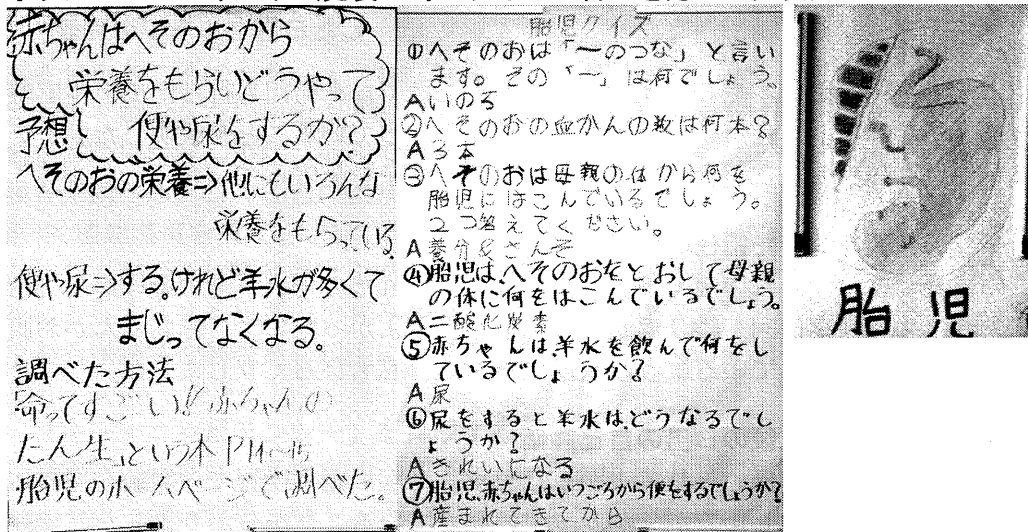 赤ちゃんはへそのおから
栄養をもらいどうやって
便や尿をするか?
予想
へそのおの栄養⇒他にもいろんな
栄養をもらっている。
便や尿⇒する。けれど羊水が多くて
まじってなくなる。
調べた方法
「命ってすごい!!赤ちゃんの
たん生」という本
胎児のホームページで調べた。
胎児クイズ
①へそのおは「〜のつな」と言い
ます。その「〜」は何でしょう。
Aいのち
②へそのおの血かんの数は何本?
A3本
③へそのおは母親の体から何を
胎児にはこんでいるでしょう。
2つ答えてください。
A養分&さんそ
④胎児は、へそのおをとおして母親
の体に何をはこんでいるでしょう。
A二酸化炭素
⑤赤ちゃんは羊水を飲んで何をし
ているでしょうか?
A尿
⑥尿をすると羊水は、どうなるでし
ょうか?
Aきれいになる
⑦胎児、赤ちゃんはいつごろから便をするでしょうか?
A産まれてきてから
胎児